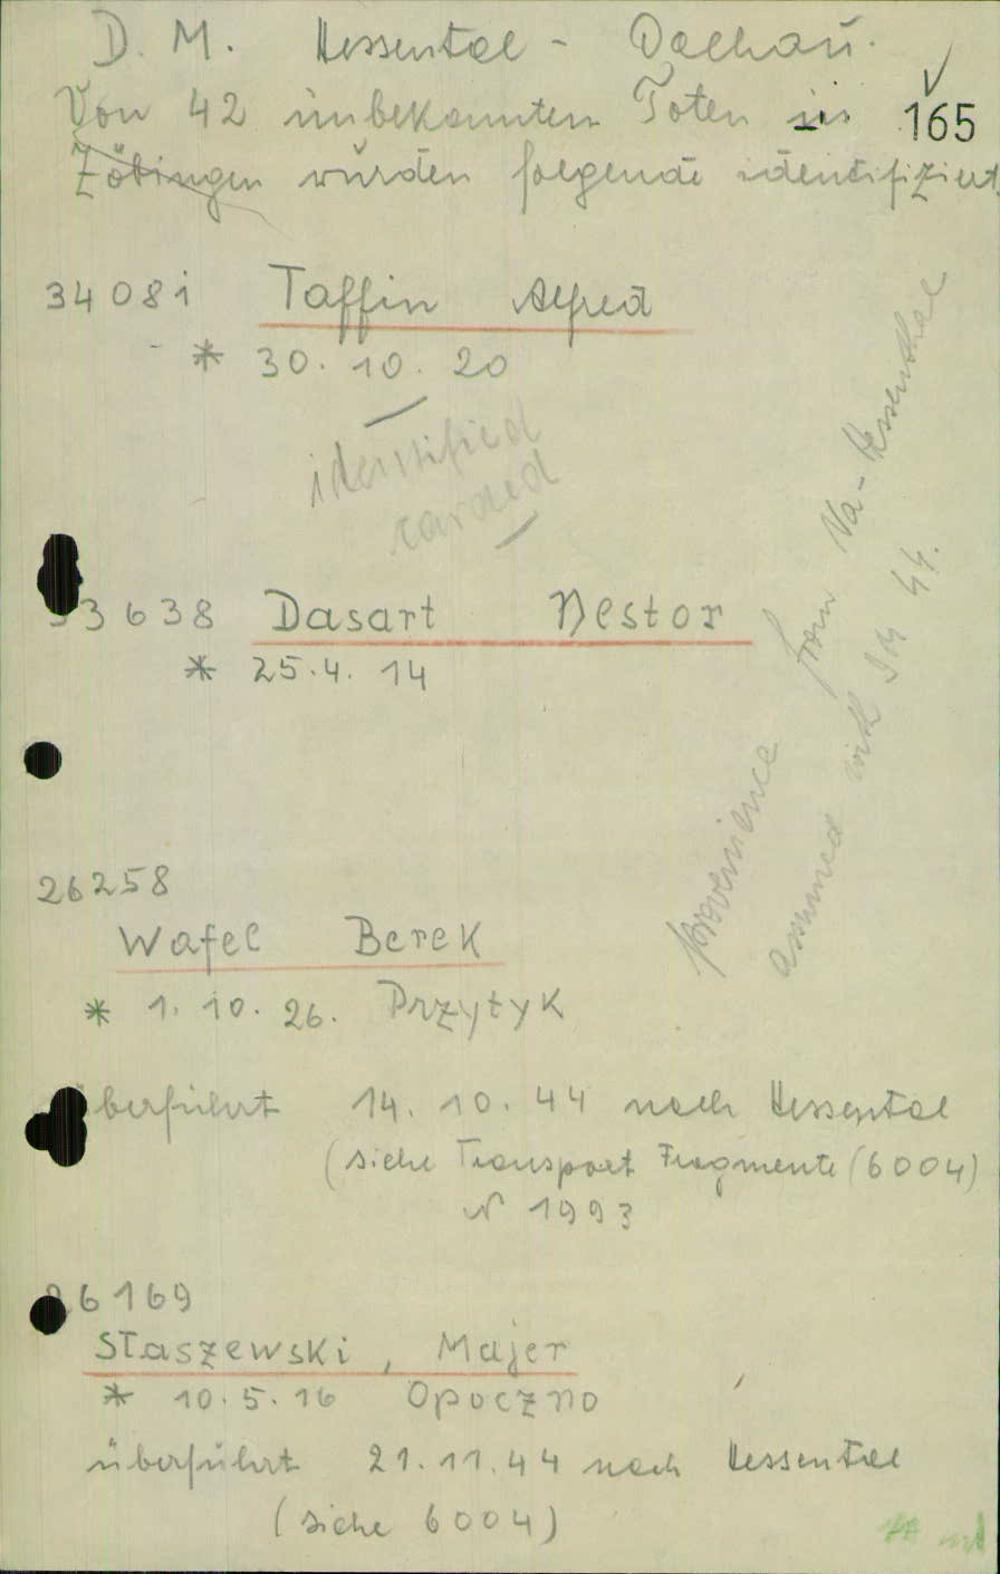 D. M. Hessental - Dachau.
Von 42 unbekannten Toten in 165
Zöbingen wurden folgende identifiziert
34081 Taffin Alfred
* 30. 10. 20
identified
carded
3638 Dasart Nestor
* 25. 4. 14
provenience from Na - Hessenthal
assumed with 44.
26258
Wafel Berek
* 1. 10. 26. Przytyk
berführt 14. 10. 44 nach Hessental
(siehe Transport Fragmente (6004)
N 1993
6169
Staszewski, Majer
* 10. 5. 16 Opoczno
überführt 21. 11. 44 nach Hessental
(siehe 6004)